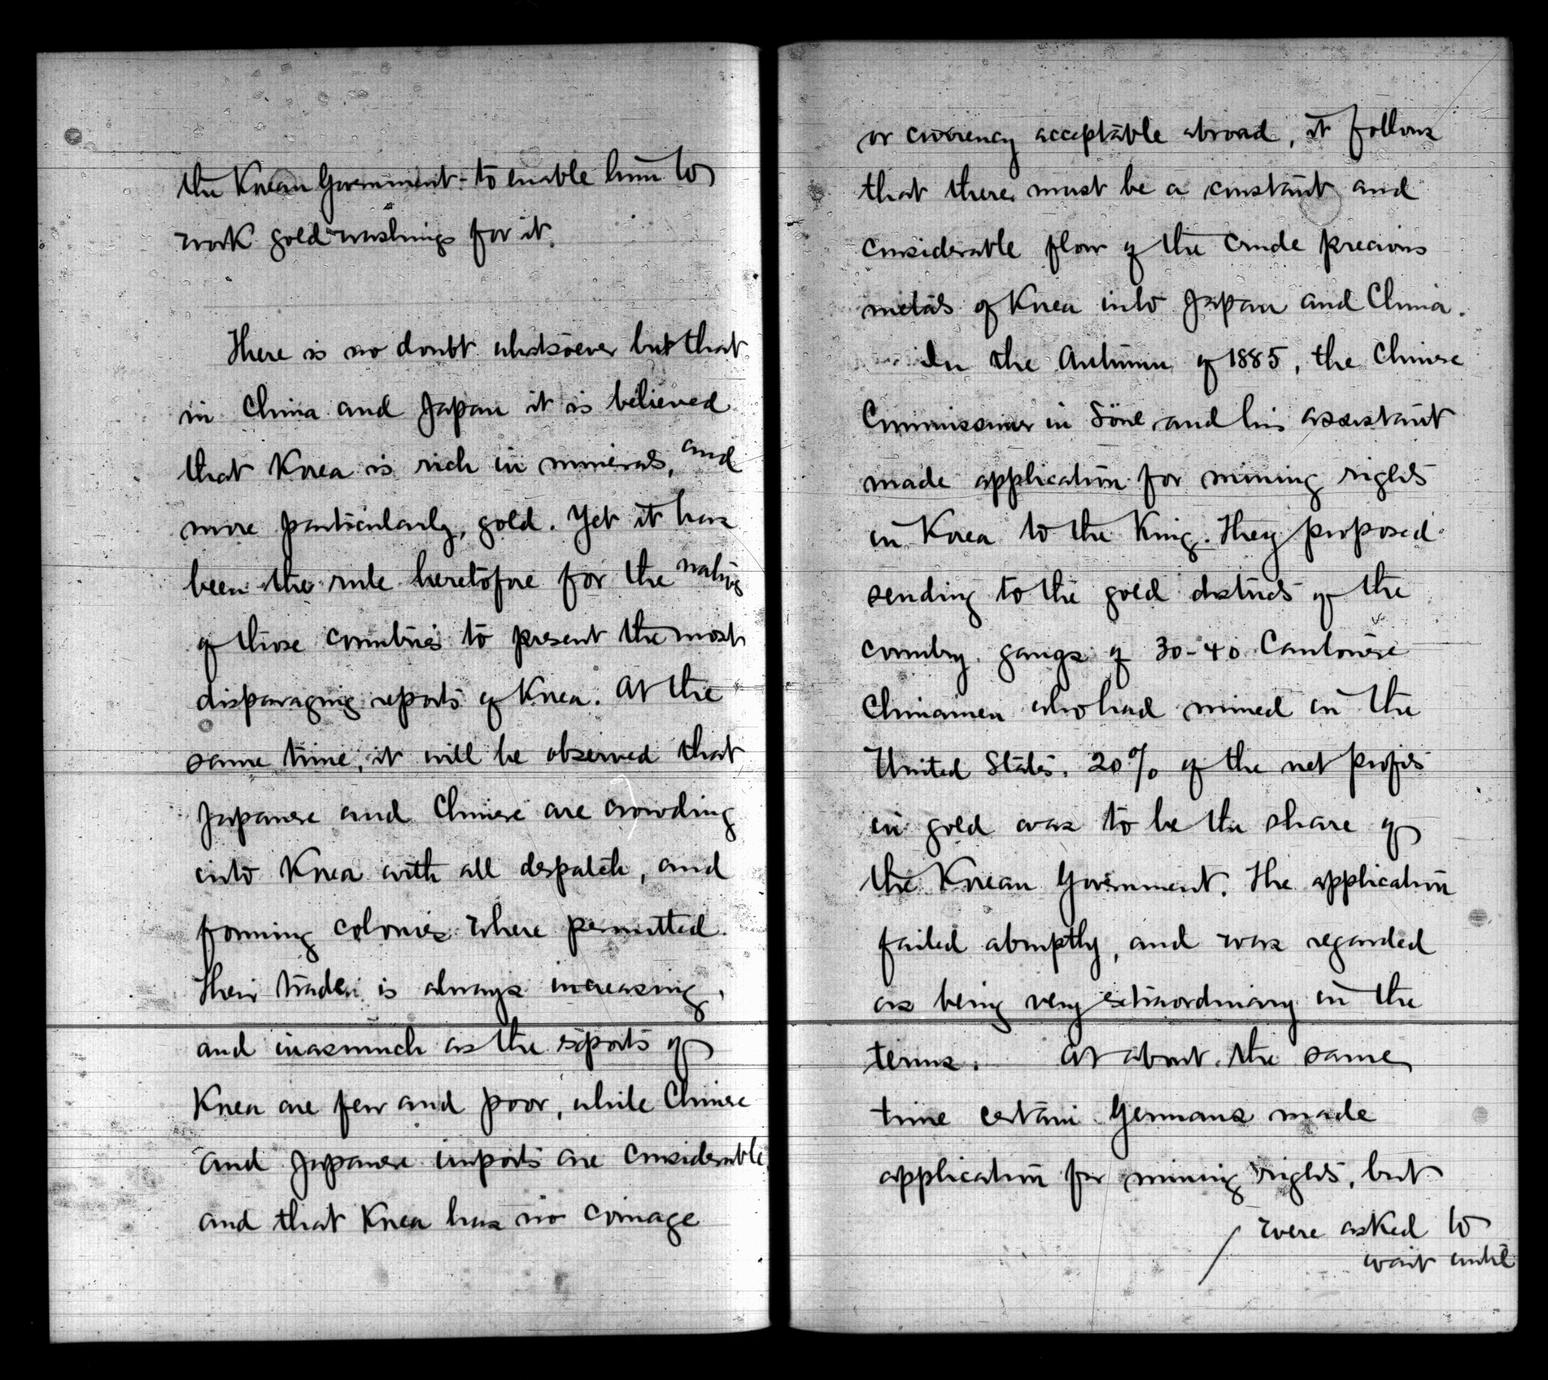 the Korean Government - to enable him to
work gold washings for it.
There is no doubt whatsoever but that
in China and Japan it is believed
that Korea is rich in minerals, and
more particularly, gold. Yet it has
been the rule heretofore for the natives
of those countries to present the most
disparaging reports of Korea. At the
same time, it will be observed that
Japanese and Chinese are crowding
into Korea with all despatch, and
forming colonies where permitted.
Their trade is always increasing,
and inasmuch as the exports of
Korea are few and poor, while Chinese
and Japanese imports are considerable
and that Korea has no coinage
or currency acceptable abroad, it follows
that there must be a constant and
considerable flow of the crude precious
metals of Korea into Japan and China.
In the Autumn of 1885, the Chinese
Commissioner in Söul and his assistant
made application for mining rights
in Korea to the King. They proposed
sending to the gold districts of the
country gangs of 30-40 Cantonese
Chinamen who had mined in the
United States. 20% of the net profits
in gold was to be the share of
the Korean Government. The application
failed abruptly, and was regarded
as being very extraordinary in the
terms. At about the same
time certain Germans made
application for mining rights, but
/ were asked to
wait until